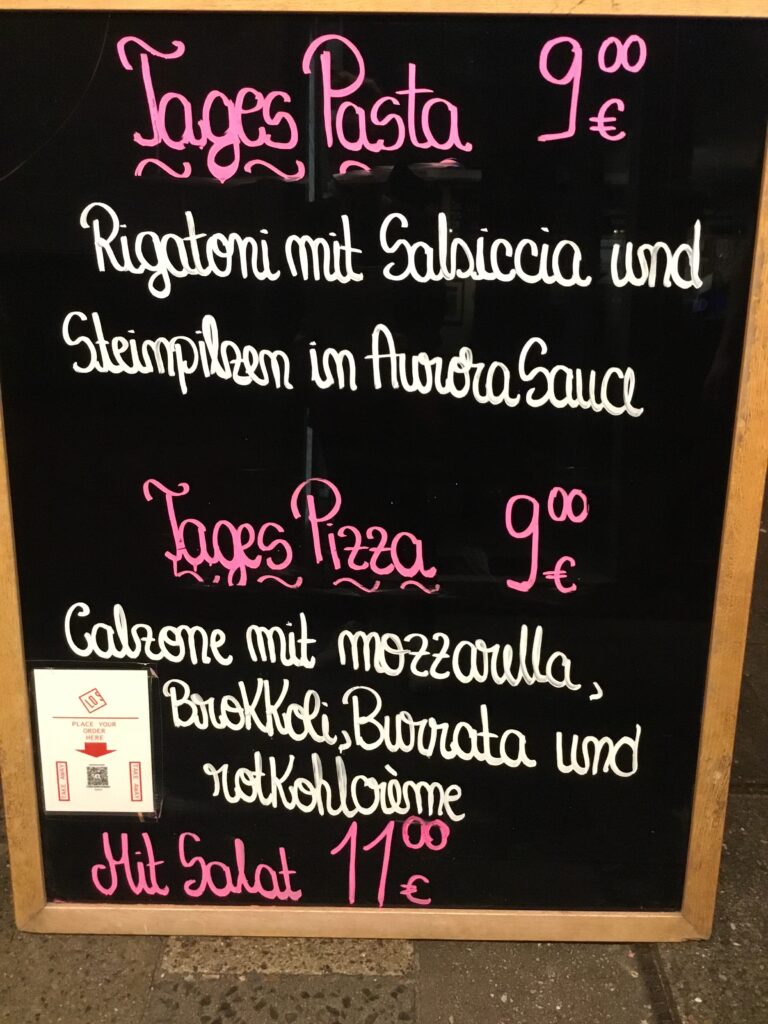 Tages Pasta 9⁰⁰ €
Rigatoni mit Salsiccia und
Steinpilzen in Aurora Sauce
Tages Pizza 9⁰⁰ €
Calzone mit mozzarella,
Brokkoli, Burrata und
rotkohlcrème
Mit Salat 11⁰⁰ €
PLACE YOUR
ORDER
HERE
TAKE AWAY
TAKE AWAY